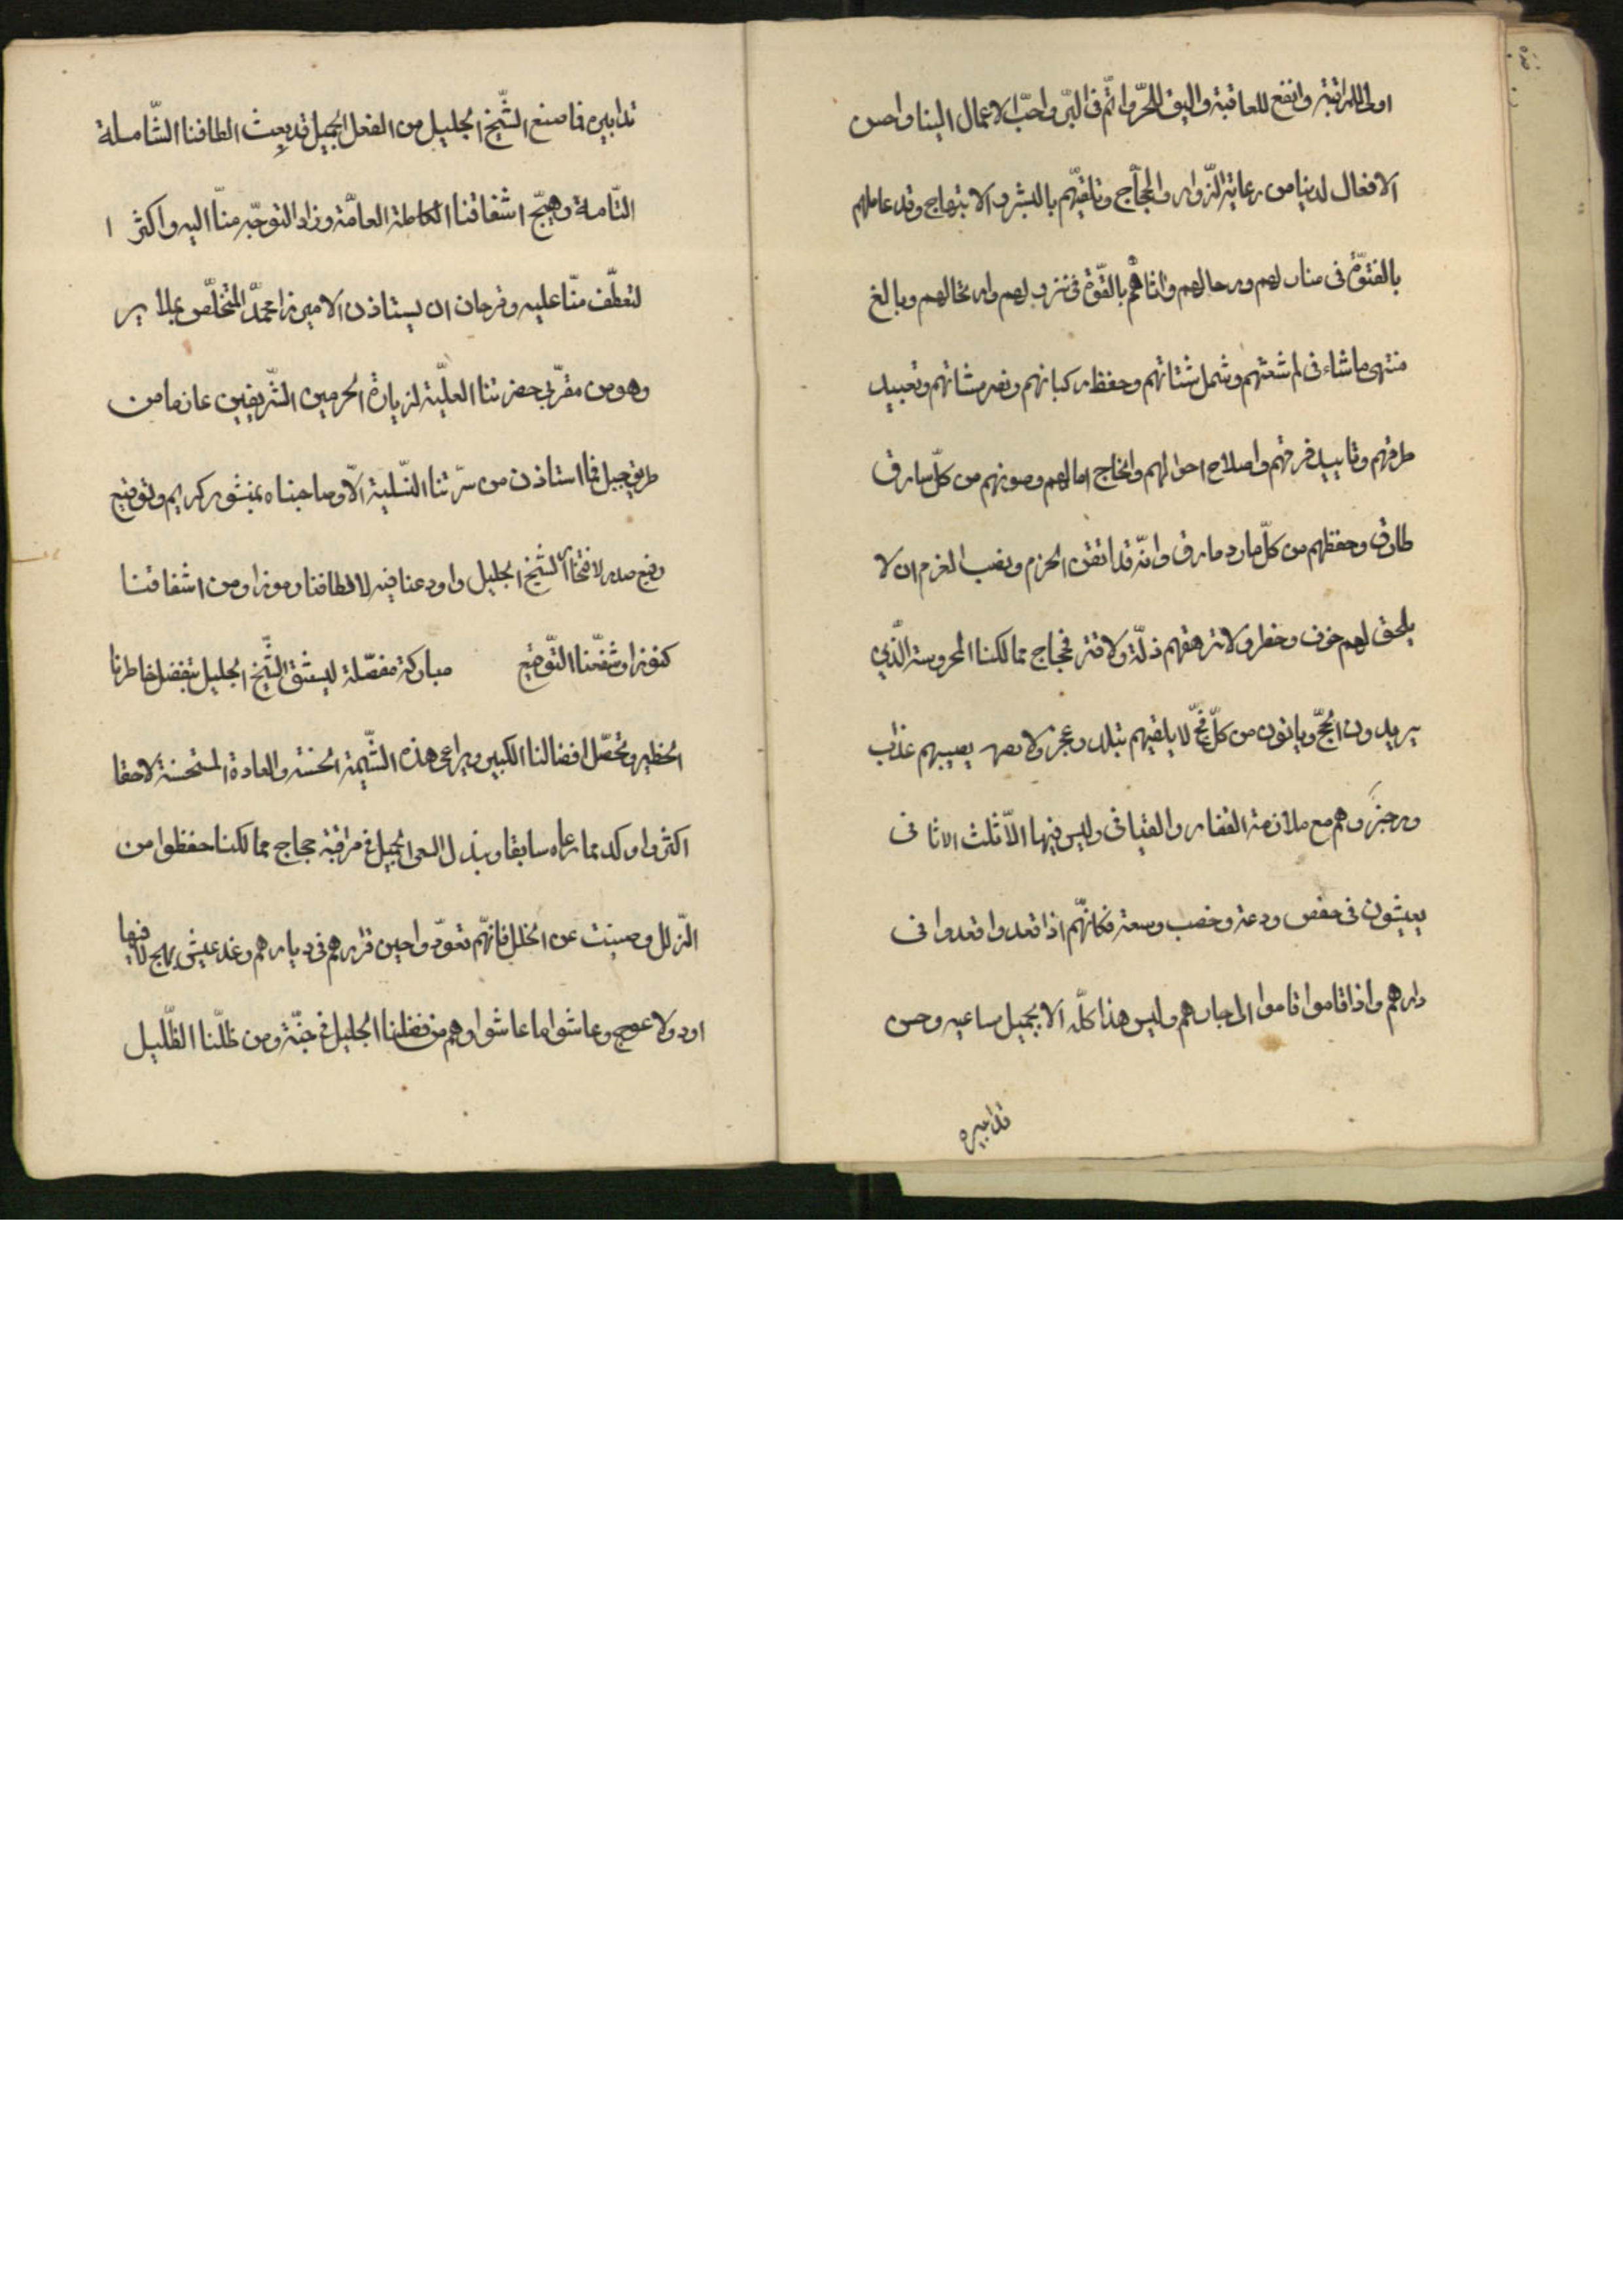 اولى للمراقبة وانفع للعاقبة واليق للحرّ واتمّ فى البرّ واحبّ الاعمال الينا واحسن
الافعال لدينا من رعاية الزّوار والحجّاج وتلقّيهم بالبشر والابتهاج وقد عاملهم
بالفتوّة فى منازلهم ورحالهم واتاهم بالقوّة فى نزولهم وارتحالهم وبالغ
منتهى ما شاء فى لم شعثهم وشمل شتاتهم وحفظ ركبانهم ونصر مشاتهم وتعبيد
طرقهم وتاييد فرقهم واصلاح احوالهم وانجاح امالهم وصونهم من كلّ سارق
طارق وحفظهم من كلّ مارد مارق وانّه قد اتقن الحزم ونصب العزم ان لا
يلحق لهم خوف وخطر ولا ترهقهم ذلّة ولا قتر فحجاج ممالكنا المحروسة الّذين
يريدون الحجّ وياتون من كلّ فجّ لا يلقيهم تبلد وعجز ولا يصيبهم عذاب
ورجز وهم مع ملازمة القفار والفيافى وليس فيها الاّ ثلث الاثافى
يعيشون فى خفض ودعة وخصب وسعة فكانّهم اذا قعدوا قعدوا فى
دارهم واذا قاموا قاموا الى جارهم وليس هذا كلّه الا بجميل مساعيه وحسن
تدابيره
تدابيره فما صنع الشّيخ الجليل من الفعل الجميل قد بعث الطافنا الشّاملة
التّامة وهيّج اشفاقنا الكاملة العامّة وزاد التوجّه منّا اليه واكثر ا
لتعطّف منّا عليه وقد حان ان يستاذن الامير زا محمّد المتخلّص
وهو من مقرّبي حضرتنا العليّة لزيارة الحرمين الشّريفين عازما من
طريق جبل فما استاذن من سدّتنا السّنية الاّ وصاحبناه بمنشور كريم وتوقيع
رفيع صدر لافتخار الشيخ الجليل واودعنا فيه لالطافنا رموزا ومن اشفاقنا
كنوزا وشفّعنا التّوقيع مباركة مفصّلة ليستوثق الشّيخ الجليل بتفضل خاطرنا
الخطير وتحصّل افضالنا الكبير ويراعى هذه الشّيمة الحسنة والعادة المستحسنة لاحقا
اكثر واوكد مما رعاه سابقا ويبذل السعى الجميل فى مراقبة حجاج ممالكنا حفظوا من
الزّلل وصينت عن الخلل فانهّم تعوّدوا حين قرارهم فى ديارهم رغد عيش بهج لا فيها
اود ولا عوج وعاشوا ما عاشوا وهم من فضلنا الجليل فى جنّة ومن ظلّنا الظّليل